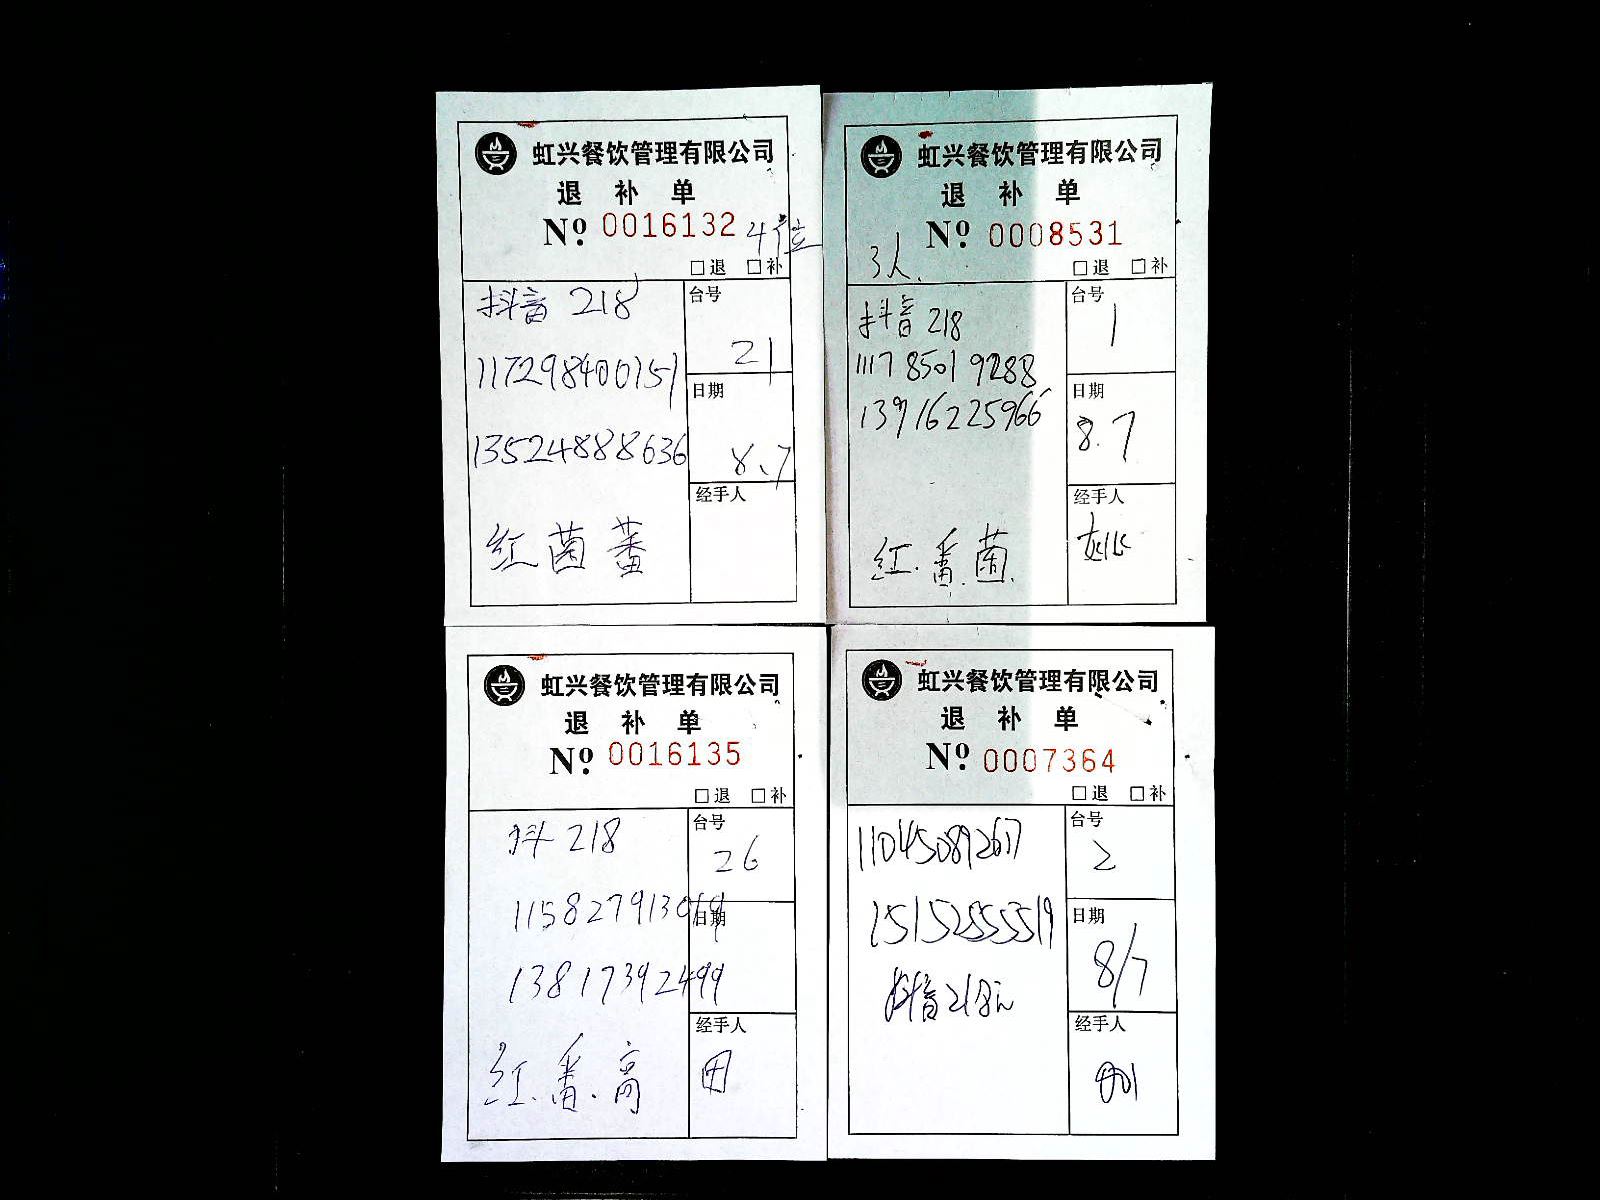 虹兴餐饮管理有限公司
退 补 单
Nº 0016132 4位
□退 □补
抖音 218
117298400151
13524888636
红 菌 蕃
台号
21
日期
8.7
经手人
虹兴餐饮管理有限公司
退 补 单
Nº 0008531
3人.
□退 □补
抖音 218
1117 8501 9288
13916225966
红.番.菌.
台号
1
日期
8.7
经手人
虹兴餐饮管理有限公司
退 补 单
Nº 0016135
□退 □补
抖 218
115827913019
13817392499
红.番.高
台号
26
日期
经手人
田
虹兴餐饮管理有限公司
退 补 单
Nº 0007364
□退 □补
15152555519
抖音218元
台号
2
日期
8/7
经手人